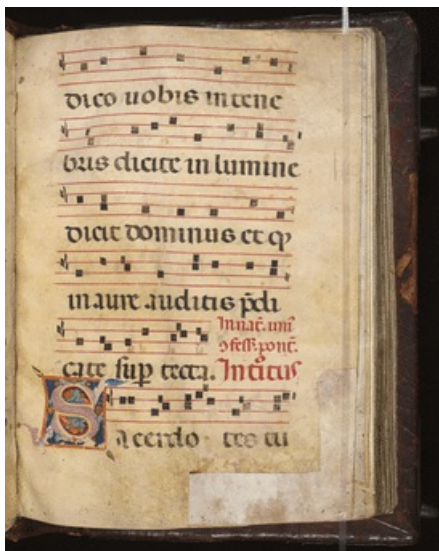 dico uobis in tene
bris dicite in lumine
dicit dominus et q
in aure auditis p̄di
In nat̄. uni
9fess. pont̄.
cate sup tecta. Introitus
Sacerdo tes tu